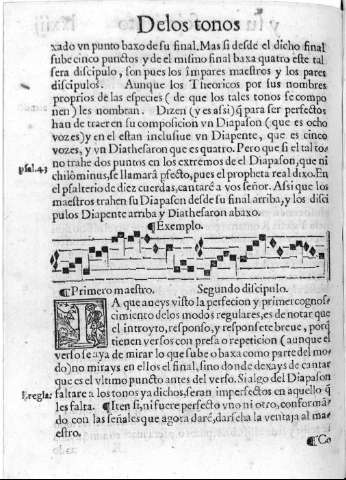 De los tonos
xado vn punto baxo de su final. Mas si desde el dicho final
sube cinco punctos y de el mismo final baxa quatro este tal
sera discipulo, son pues los impares maestros y los pares
discipulos. Aunque los Theoricos por sus nombres
proprios de las especies (de que los tales tonos se compo
nen) les nombran. Dizen (y es asi) q̃ para ser perfectos
han de traer en su composicion vn Diapason (que es ocho
vozes) y en el estan inclusiue vn Diapente, que es cinco
vozes, y vn Diathesaron que es quatro. Pero que si el tal to
no trahe dos puntos en los extremos de el Diapason, que ni
psal.43
chilòminus, se llamarà pfecto, pues el propheta real dixo. En
el psalterio de diez cuerdas, cantarè a vos señor. Assi que los
maestros trahen su Diapason desde su final arriba, y los disci
pulos Diapente arriba y Diathesaron abaxo.
¶ Exemplo.
¶ Primero maestro. Segundo discipulo.
IA que aueys visto la perfecion y primer cognos
cimiento de los modos regulares, es de notar que
el introyto, responso, y responsete breue, porq̃
tienen versos con presa o repeticion (aunque el
verso se aya de mirar lo que sube o baxa como parte del mo
do) no mirays en ellos el final, sino donde dexays de cantar
que es el vltimo puncto antes del verso. Si algo del Diapason
E regla:
faltare a los tonos ya dichos, seran imperfectos en aquello q̃
les falta. ¶ Iten si, ni fuere perfecto vno ni otro, conforma
do con las señales que agora darè, darseha la ventaja al ma
estro.
¶ Co